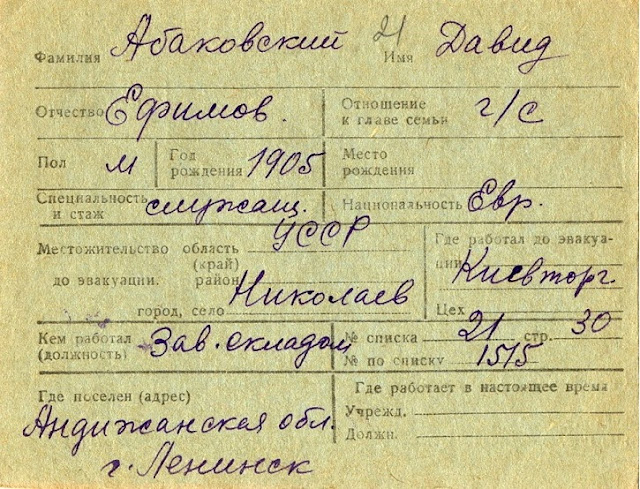 Фамилия Абаковский 21 Имя Давид
Отчество Ефимов. Отношение к главе семьи г/с
Пол м Год рождения 1905 Место рождения
Специальность и стаж служащ. Национальность Евр.
Местожительство область УССР Где работал до эвакуа-
(край) ции Киевторг.
до эвакуации. район
город, село Николаев Цех
Кем работал Зав. складом № списка 21 стр. 30
(должность) № по списку 1515
Где поселен (адрес) Где работает в настоящее время
Андижанская обл. Учрежд.
г. Ленинск Должн.